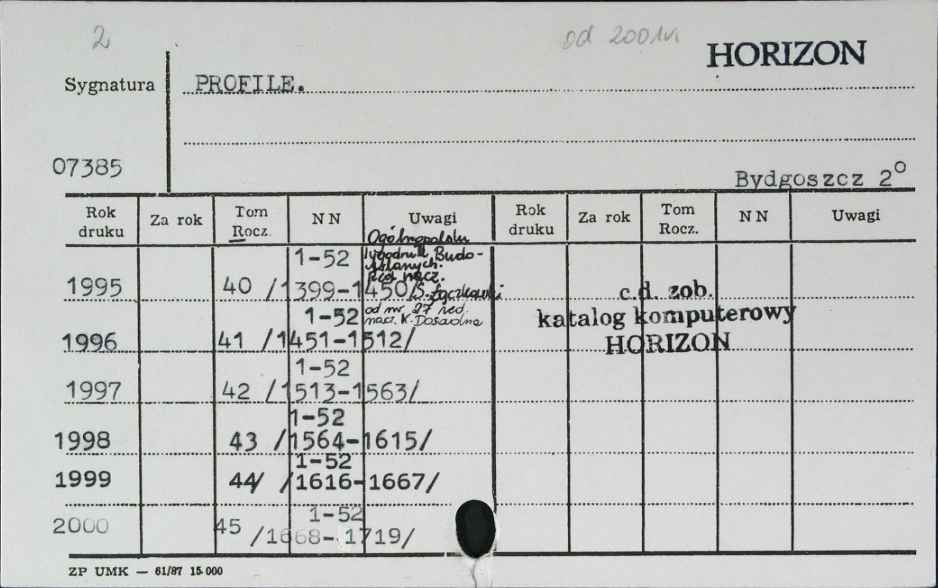 2
od 2001r.
HORIZON
Sygnatura PROFILE.
07385
Bydgoszcz 2°
Rok druku Za rok Tom Rocz. NN Uwagi Rok druku Za rok Tom Rocz. NN Uwagi
Ogólnopolski
Tygodnik Budo-
wlanych.
Red. nacz.
S. Łączkowski
1-52
1995 40 /1399-1450/
od nr 27 red.
nacz. K.
1-52
1996 41 /1451-1512/
1-52
1997 42 /1513-1563/
1-52
1998 43 /1564-1615/
1-52
1999 44/ /1616-1667/
1-52
2000 45 /1668-1719/
c.d. zob.
katalog komputerowy
HORIZON
ZP UMK — 61/87 15 000